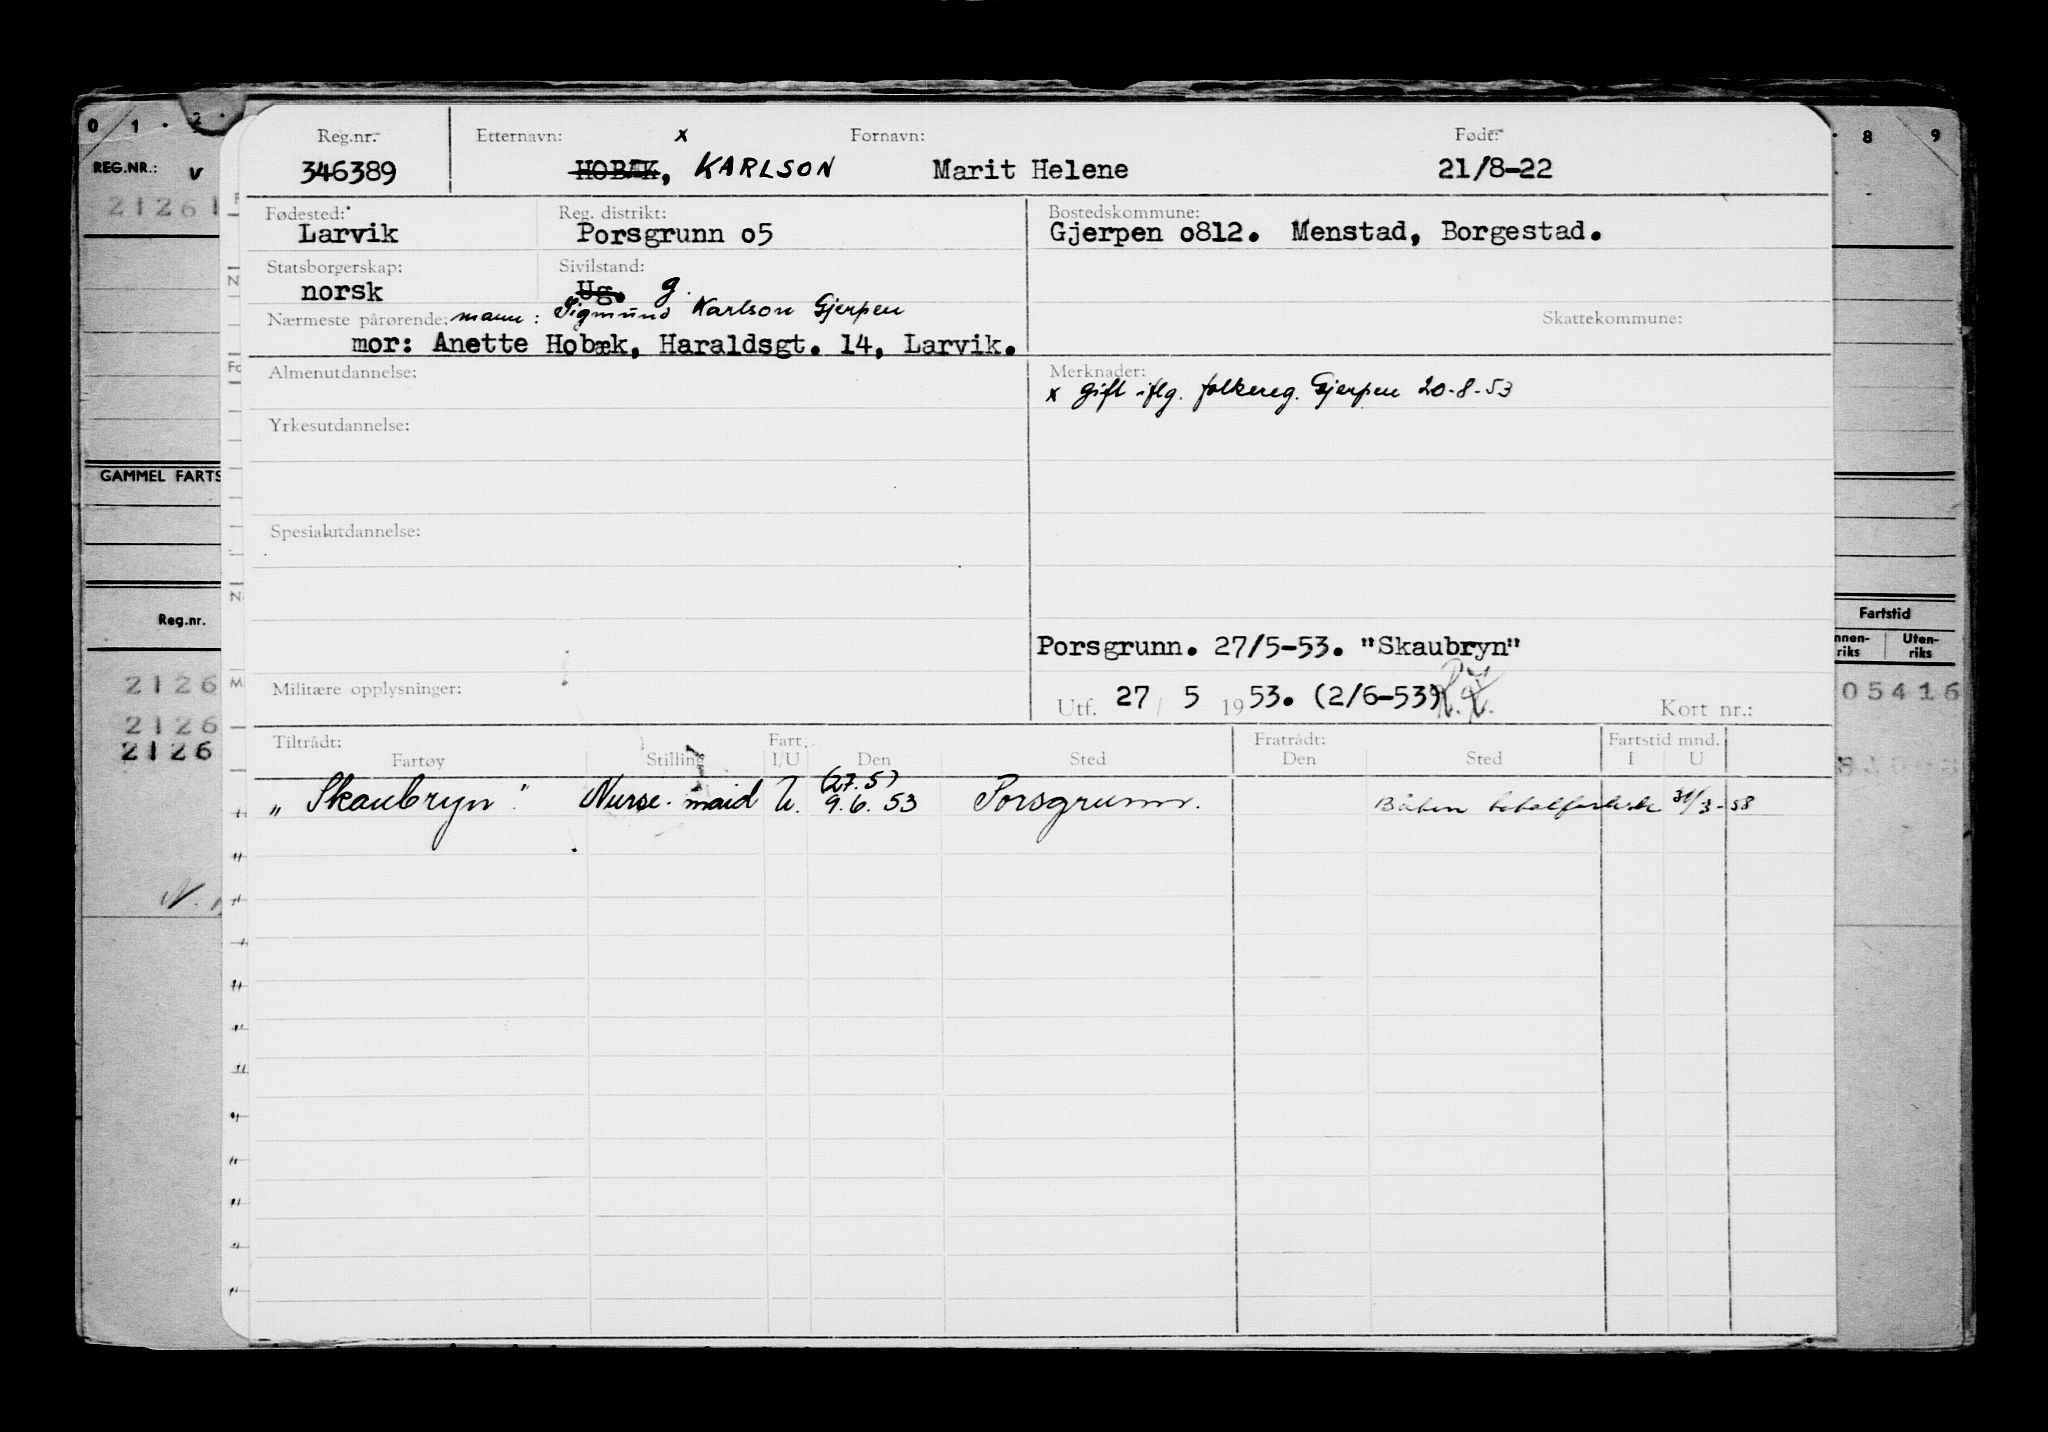 0 1 . 2 . 8 9
REG.NR.: v
21261
GAMMEL FARTS
Reg.nr.
2126
2126
2126
N.
Reg.nr. Etternavn: x Fornavn: Født:
346389 HOBÆK, KARLSON Marit Helene 21/8-22
Fødested: Reg. distrikt: Bostedskommune:
Larvik Porsgrunn o5 Gjerpen o812. Menstad, Borgestad.
Statsborgerskap: Sivilstand:
norsk Ug. g.
Nærmeste pårørende: mann: Sigmund Karlson Gjerpen Skattekommune:
mor: Anette Hobæk, Haraldsgt. 14, Larvik.
Almenutdannelse: Merknader:
x gift iflg. folkereg. Gjerpen 20-8-53
Yrkesutdannelse:
Spesialutdannelse:
Porsgrunn. 27/5-53. "Skaubryn"
Militære opplysninger: Utf. 27 / 5 1953. (2/6-53) Kort nr.:
Tiltrådt: Fart. Fratrådt: Fartstid mnd.
Fartøy Stilling I/U Den Sted Den Sted I U
(27.5)
"Skaubryn" Nurse-maid U. 9.6.53 Porsgrunn. Båten totalforliste 31/3-58
Fartstid
nnen-riks Uten-riks
05416